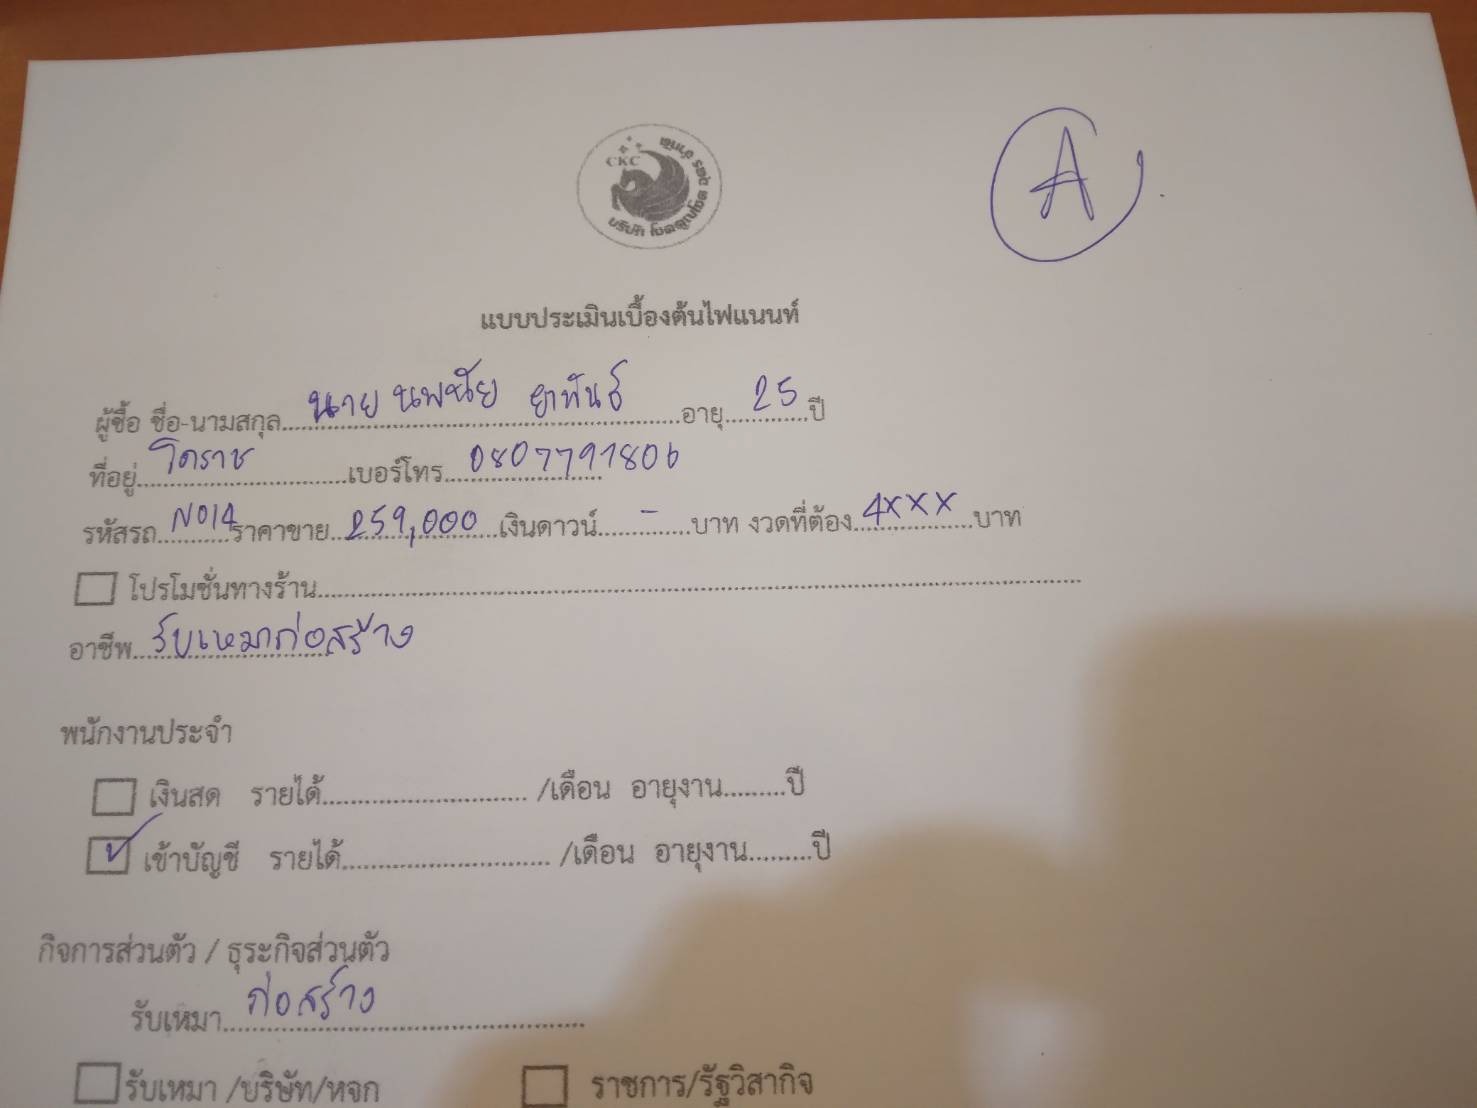 A
CKC
บริษัท โชคคูณโชค ฤดูธร จำกัด
แบบประเมินเบื้องต้นไฟแนนท์
ผู้ซื้อ ชื่อ-นามสกุล นาย นพชัย ยาพันธ์ อายุ 25 ปี
ที่อยู่ โคราช เบอร์โทร 0807791806
รหัสรถ N014 ราคาขาย 259,000 เงินดาวน์ - บาท งวดที่ต้อง 4xxx บาท
โปรโมชั่นทางร้าน
อาชีพ รับเหมาก่อสร้าง
พนักงานประจำ
เงินสด รายได้ /เดือน อายุงาน ปี
เข้าบัญชี รายได้ /เดือน อายุงาน ปี
กิจการส่วนตัว / ธุระกิจส่วนตัว
รับเหมา ก่อสร้าง
รับเหมา /บริษัท/หจก ราชการ/รัฐวิสากิจ